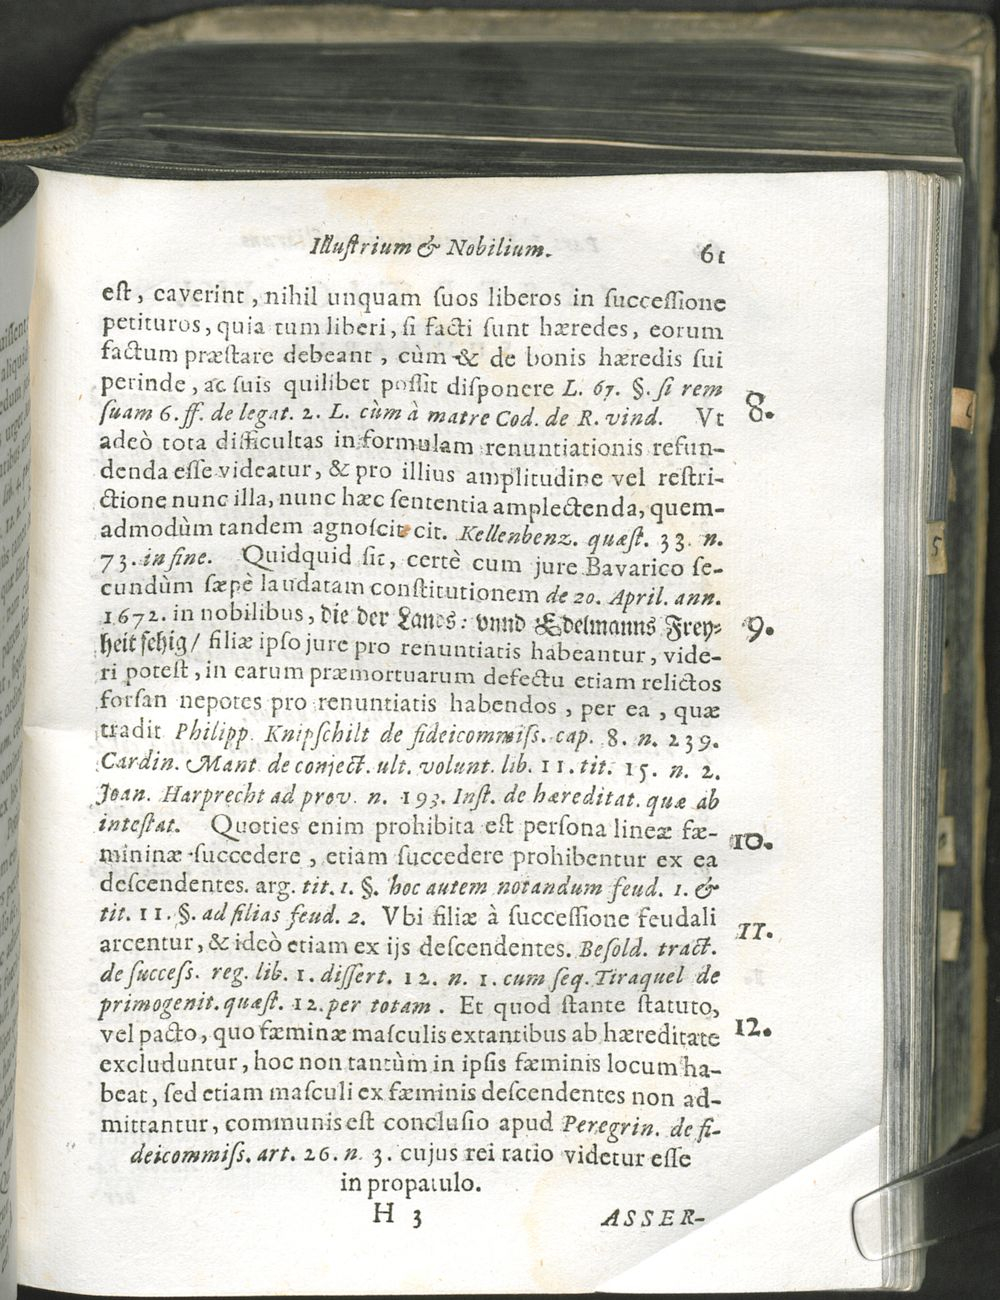 Illuſtrium & Nobilium. 61
eſt, caverint, nihil unquam ſuos liberos in ſucceſſione
petituros, quia tum liberi, ſi facti ſunt hæredes, eorum
factum præſtare debeant, cùm & de bonis hæredis ſui
perinde, ac ſuis quilibet poſſit diſponere L. 67. §. ſi rem
ſuam 6. ff. de legat. 2. L. cùm à matre Cod. de R. vind. Vt 8.
adeò tota difficultas in formulam renuntiationis refun-
denda eſſe videatur, & pro illius amplitudine vel reſtri-
ctione nunc illa, nunc hæc ſententia amplectenda, quem-
admodùm tandem agnoſcit cit. Kellenbenz. quæſt. 33. n.
73. in fine. Quidquid ſit, certè cum jure Bavarico ſe-
cundùm ſæpè laudatam conſtitutionem de 20. April. ann.
1672. in nobilibus, die der Lands: vnnd Edelmanns Frey- 9.
heit fehig/ filiæ ipſo jure pro renuntiatis habeantur, vide-
ri poteſt, in earum præmortuarum defectu etiam relictos
forſan nepotes pro renuntiatis habendos, per ea, quæ
tradit Philipp. Knipſchilt de fideicommiſs. cap. 8. n. 239.
Cardin. Mant. de conject. ult. volunt. lib. 11. tit. 15. n. 2.
Joan. Harprecht ad prov. n. 193. Inſt. de hæreditat. quæ ab
inteſtat. Quoties enim prohibita eſt perſona lineæ fæ- 10.
mininæ ſuccedere, etiam ſuccedere prohibentur ex ea
deſcendentes. arg. tit. 1. §. hoc autem notandum feud. 1. &
tit. 11. §. ad filias feud. 2. Vbi filiæ à ſucceſſione feudali 11.
arcentur, & ideò etiam ex ijs deſcendentes. Beſold. tract.
de ſucceſs. reg. lib. 1. diſſert. 12. n. 1. cum ſeq. Tiraquel de
primogenit. quæſt. 12. per totam. Et quod ſtante ſtatuto,
vel pacto, quo fæminæ maſculis extantibus ab hæreditate 12.
excluduntur, hoc non tantùm in ipſis fæminis locum ha-
beat, ſed etiam maſculi ex fæminis deſcendentes non ad-
mittantur, communis eſt concluſio apud Peregrin. de fi-
deicommiſs. art. 26. n. 3. cujus rei ratio videtur eſſe
in propatulo.
H 3 ASSER-